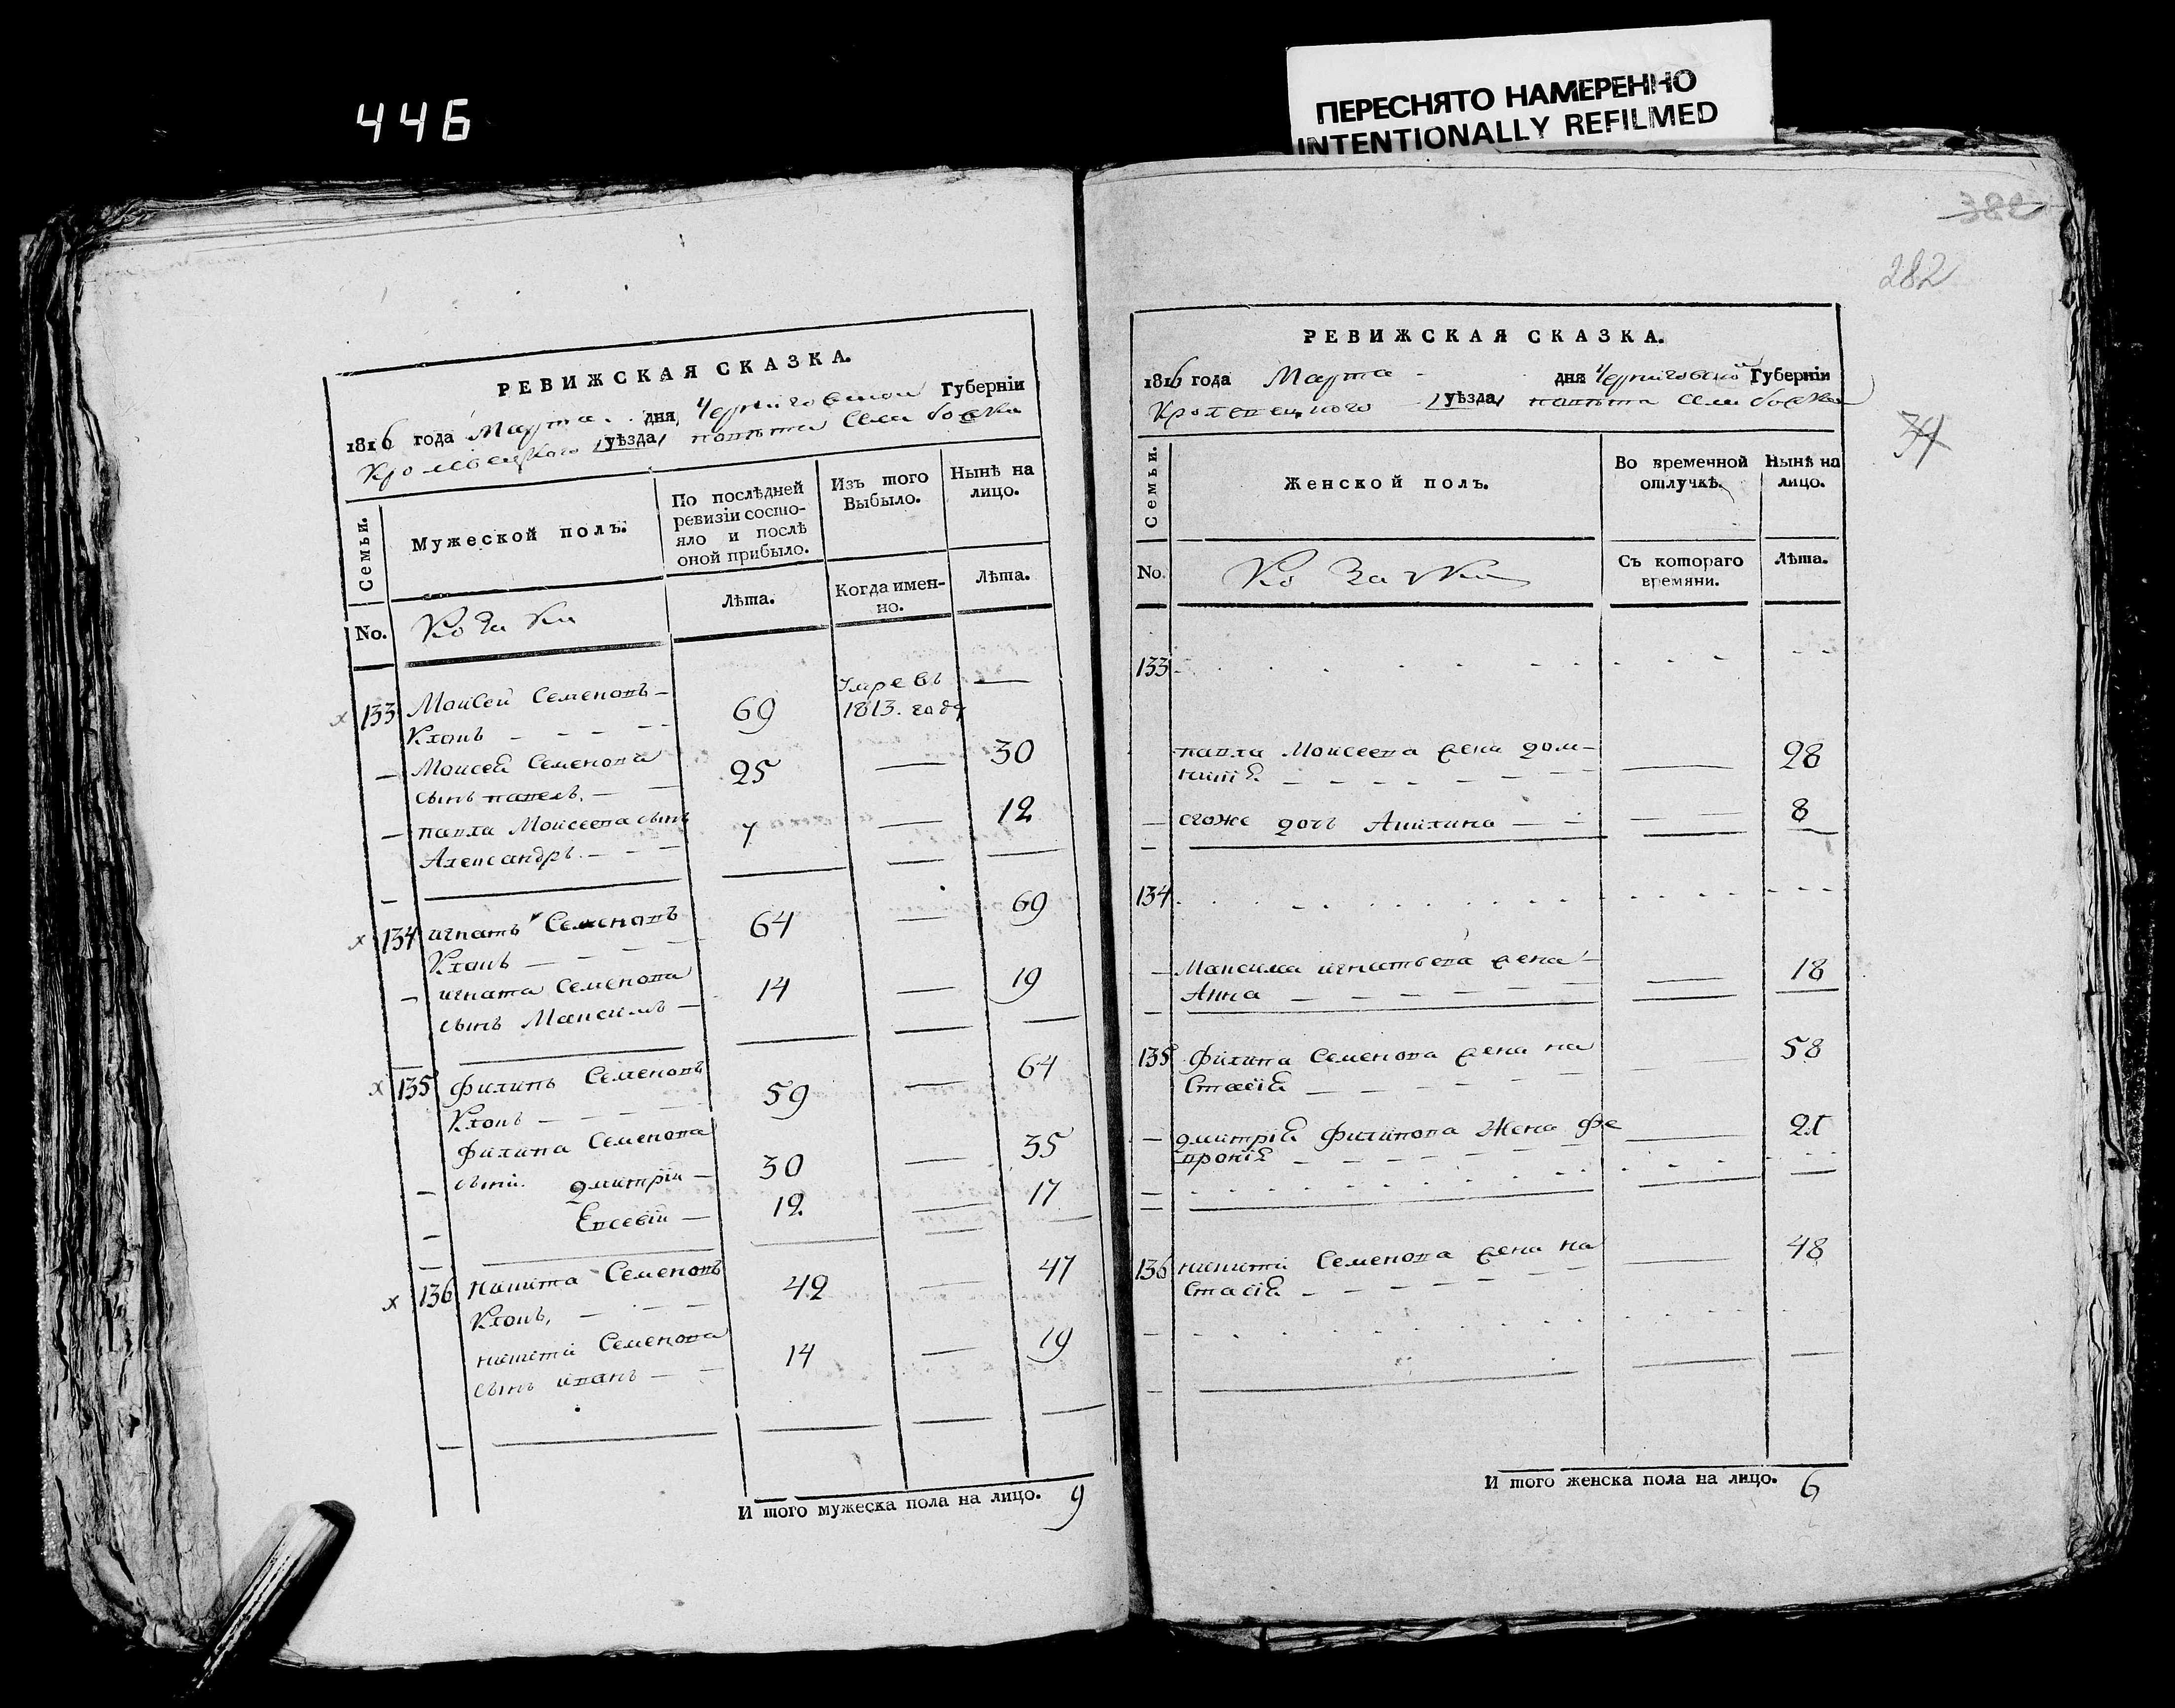 446
ПЕРЕСНЯТО НАМЕРЕННО
INTENTIONALLY REFILMED
382
282
34
РЕВИЖСКАЯ СКАЗКА.
1816 года Марта дня Черниговской Губерніи
Кролевецкого уѣзда
Семьи.
Мужеской полъ.
По послѣдней ревизіи состояло и послѣ оной прибыло.
Изъ того Выбыло.
Нынѣ на лицо.
No.
Козаки
Лѣта.
Когда именно.
Лѣта.
133 Моисей Семеновъ 69 Умре въ
Клопъ 1813. году
Моисея Семенова 25 30
сынъ павелъ.
павла Моисеева сынъ 7 12
Александръ.
134 игнатъ Семеновъ 64 69
Клопъ
игната Семенова 14 19
сынъ Максимъ
135 Филипъ Семеновъ 59 64
Клопъ
Филипа Семенова
сыни. дмитрій 30 35
Евсевій 12 17
136 Никита Семеновъ 42 47
Клопъ,
никити Семенова 14 19
сынъ иванъ
И того мужеска пола на лицо. 9
РЕВИЖСКАЯ СКАЗКА.
1816 года Марта дня Черниговской Губерніи
Кролевецкого уѣзда
Семьи.
Женской полъ.
Во временной отлучкѣ.
Нынѣ на лицо.
No.
Козачки
Съ котораго времяни.
Лѣта.
133
павла Моисеева жена дом- 28
никія
егоже дочь Акилина 8
134
Максима игнатьева жена 18
Анна
135 Филипа Семенова жена на 58
стасія
дмитрія Филипова Жена Фе
вронія
136 никити Семенова жена на 48
стасія
И того женска пола на лицо. 6